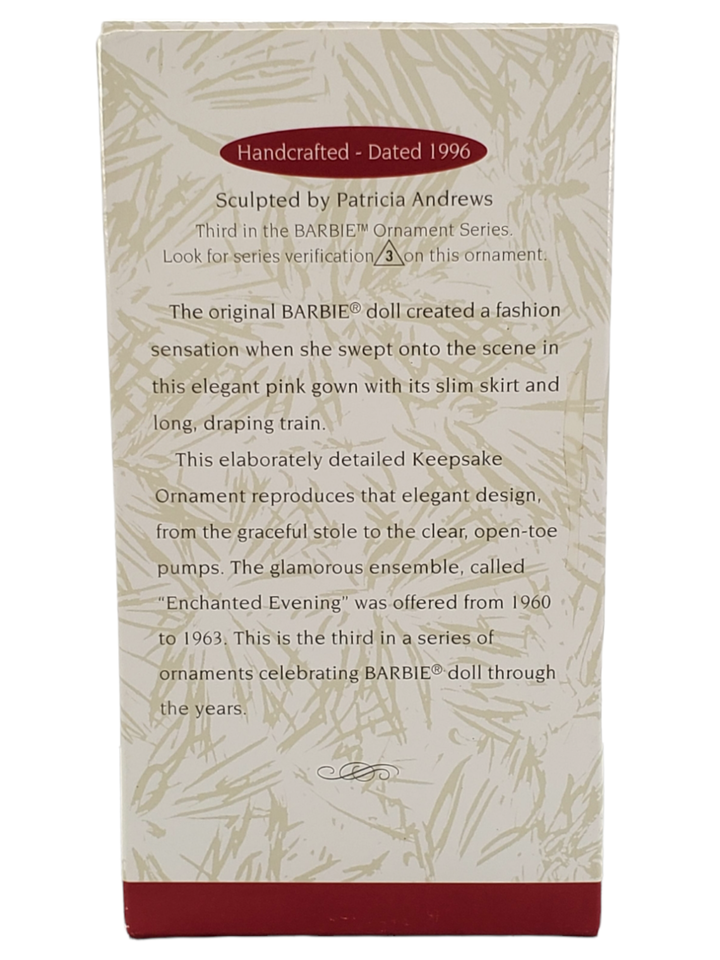 Handcrafted - Dated 1996
Sculpted by Patricia Andrews
Third in the BARBIE™ Ornament Series.
Look for series verification 3 on this ornament.
The original BARBIE® doll created a fashion
sensation when she swept onto the scene in
this elegant pink gown with its slim skirt and
long, draping train.
This elaborately detailed Keepsake
Ornament reproduces that elegant design,
from the graceful stole to the clear, open-toe
pumps. The glamorous ensemble, called
“Enchanted Evening” was offered from 1960
to 1963. This is the third in a series of
ornaments celebrating BARBIE® doll through
the years.